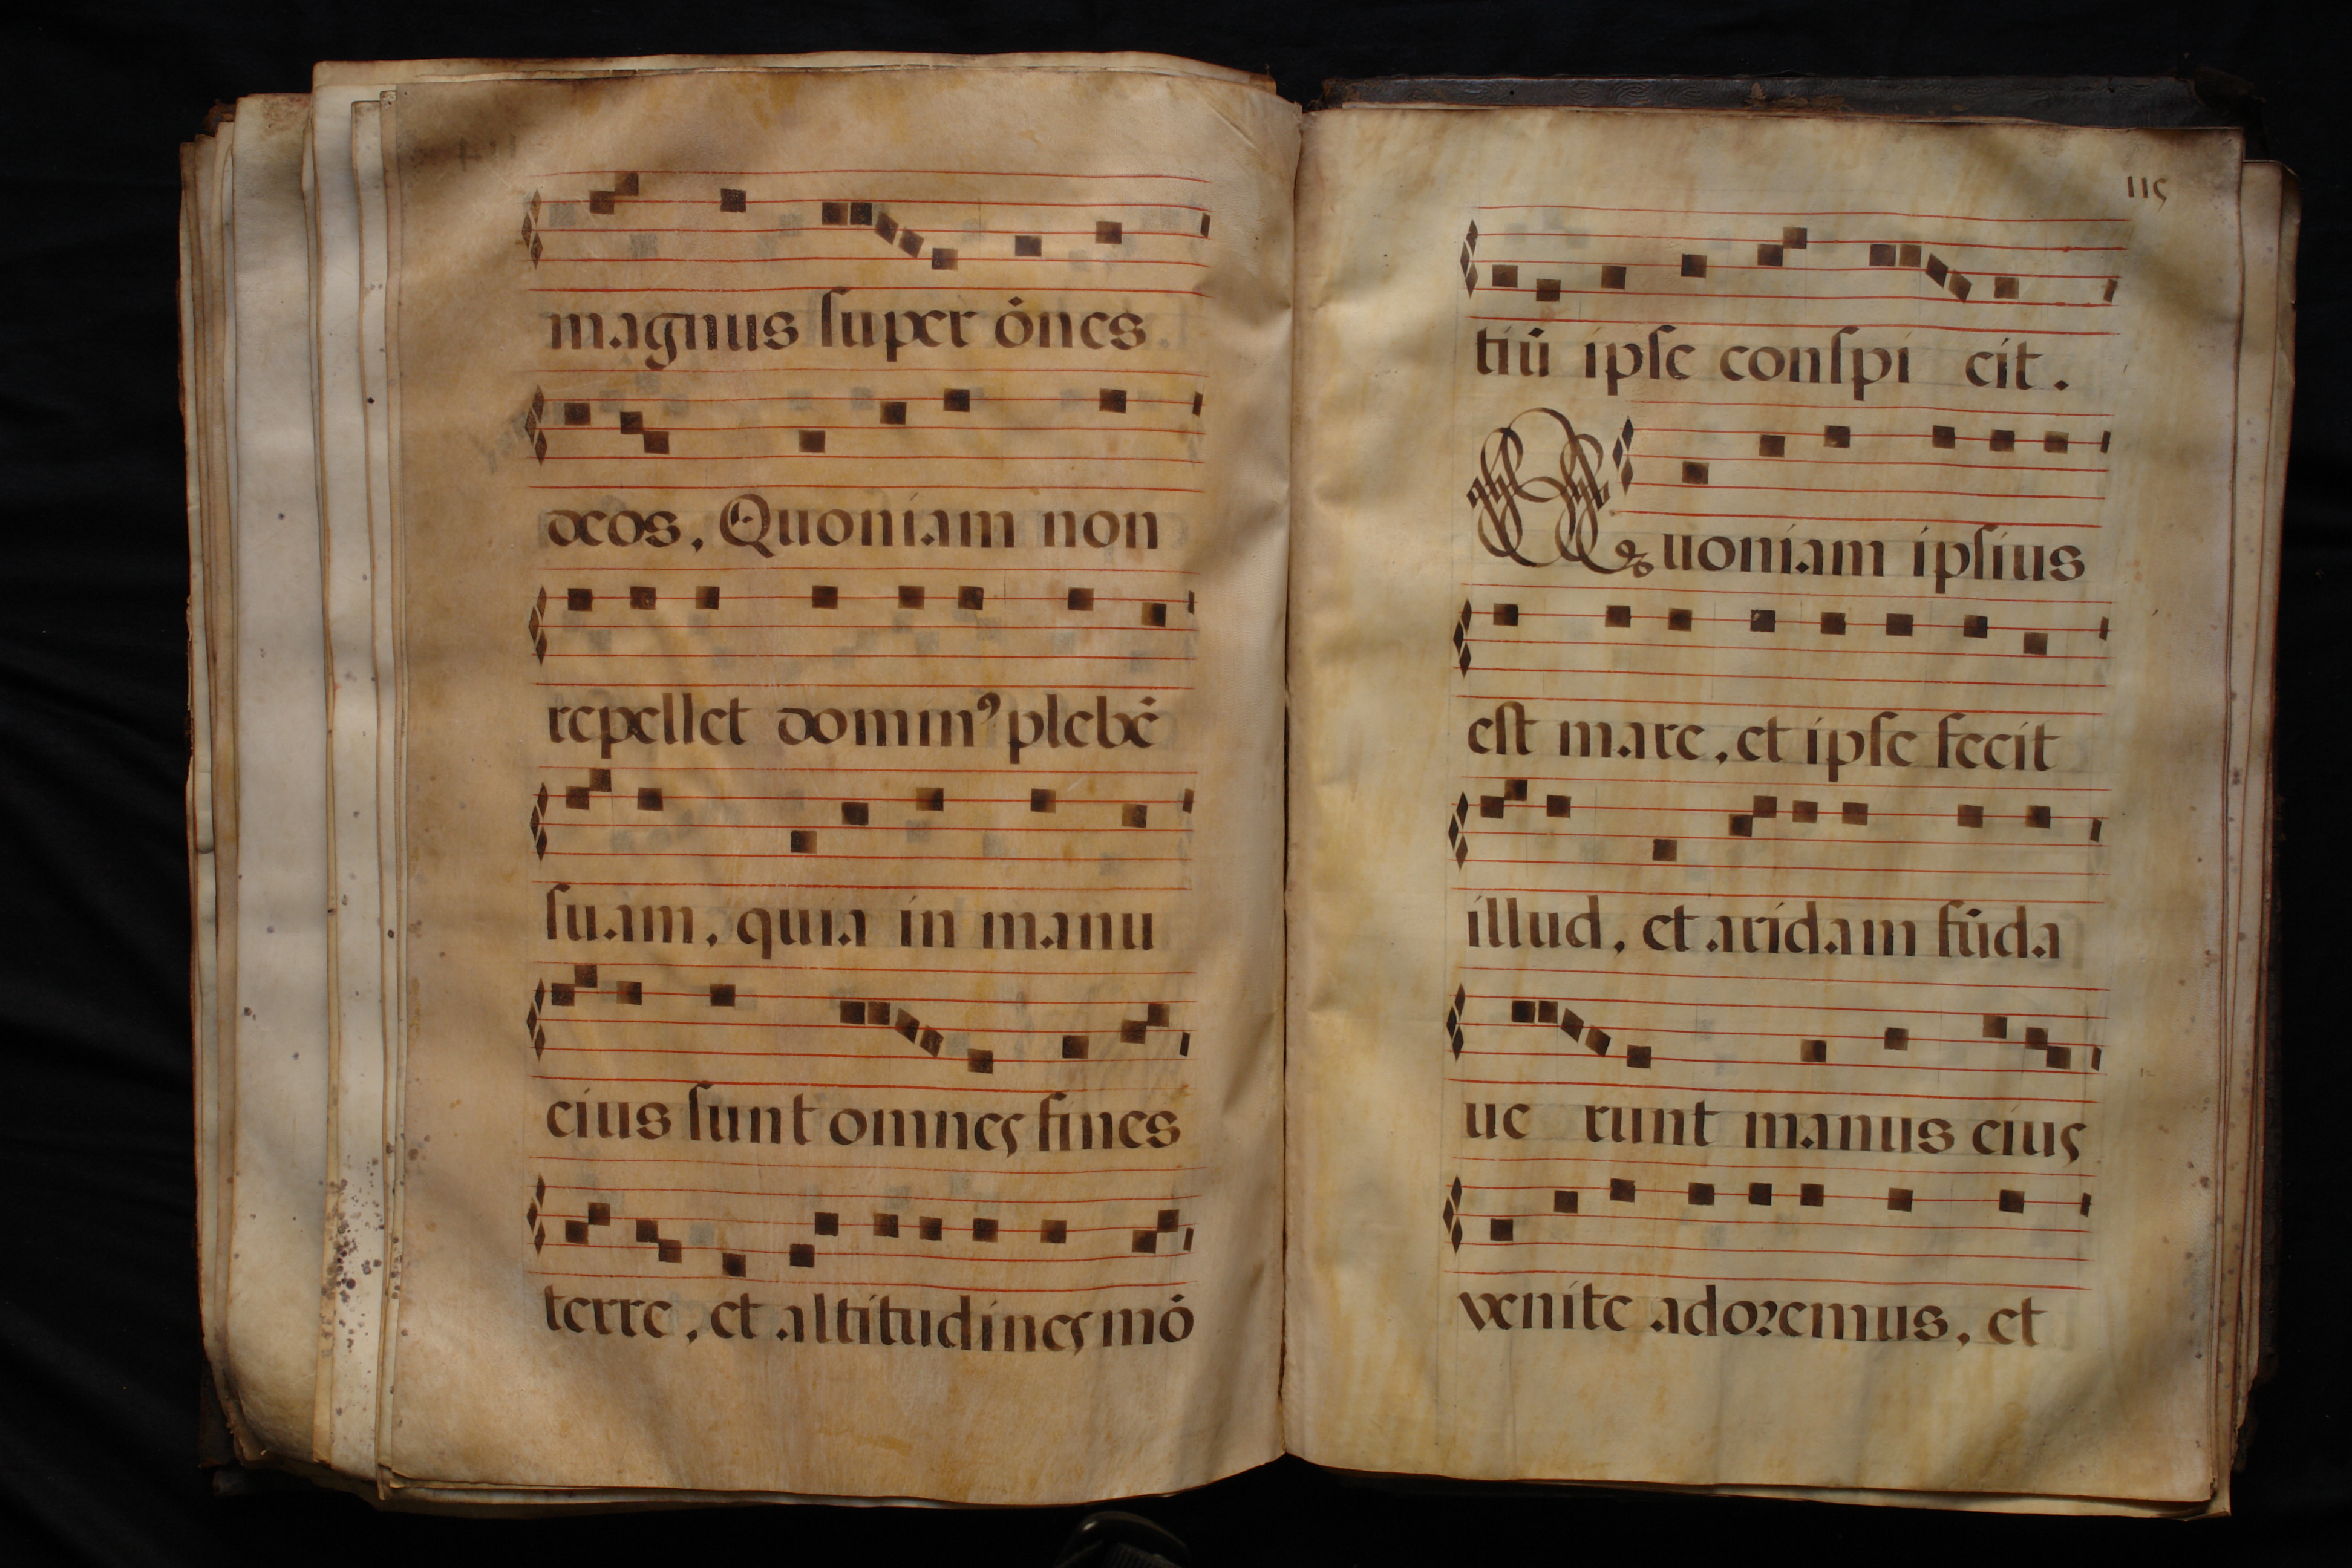 magnus ſuper ōnes
deos, Quoniam non
repellet dominꝰ plebē
ſuam, quia in manu
eius ſunt omnes fines
terre, et altitudines mō
115
tiū ipſe conſpi cit.
Quoniam ipſius
eſt mare, et ipſe fecit
illud, et aridam fūda
ue runt manus eius
venite adoꝛemus, et